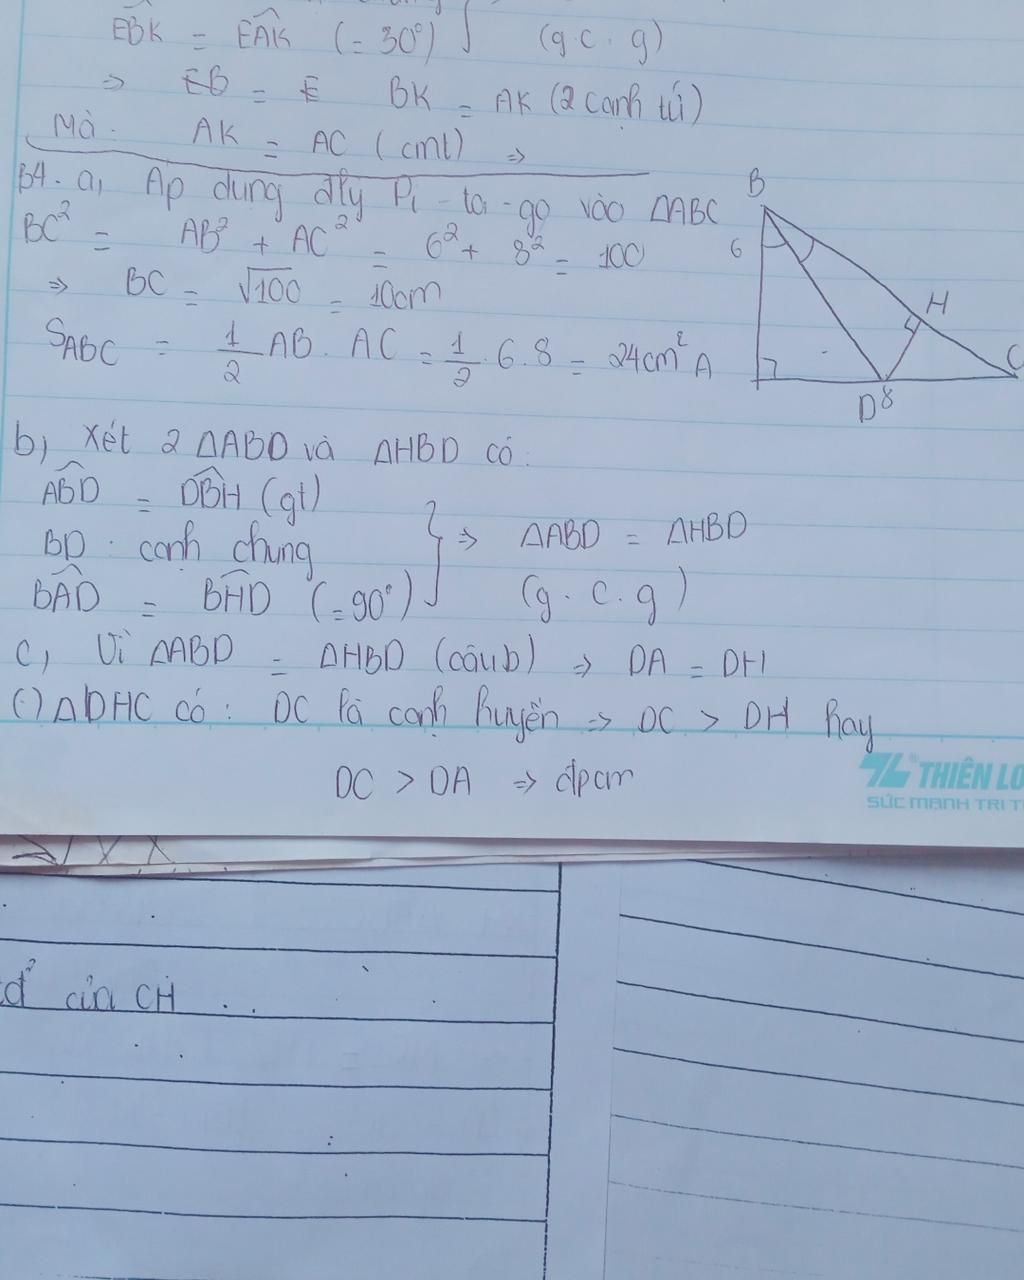 EBK = EAK (= 30°) (g.c.g)
⇒ EB = E BK = AK (2 cạnh tứ)
Mà. AK = AC (cmt) ⇒
B4. a, Áp dụng đly Pi-ta-go vào ΔABC
BC² = AB² + AC² = 6² + 8² = 100
⇒ BC = √100 = 10cm
S_ABC = 1/2 AB. AC = 1/2 .6.8 = 24cm²
B
6
H
C
A
D 8
b, Xét 2 ΔABD và ΔHBD có:
ABD = DBH (gt)
BD: cạnh chung
BAD = BHD (=90°)
⇒ ΔABD = ΔHBD
(g.c.g)
c, Vì ΔABD = ΔHBD (câu b) ⇒ DA = DH
(·) ΔDHC có: DC là cạnh huyền ⇒ DC > DH hay
DC > DA ⇒ đpcm
THIÊN LO
SỨC MẠNH TRI T
đ' của CH